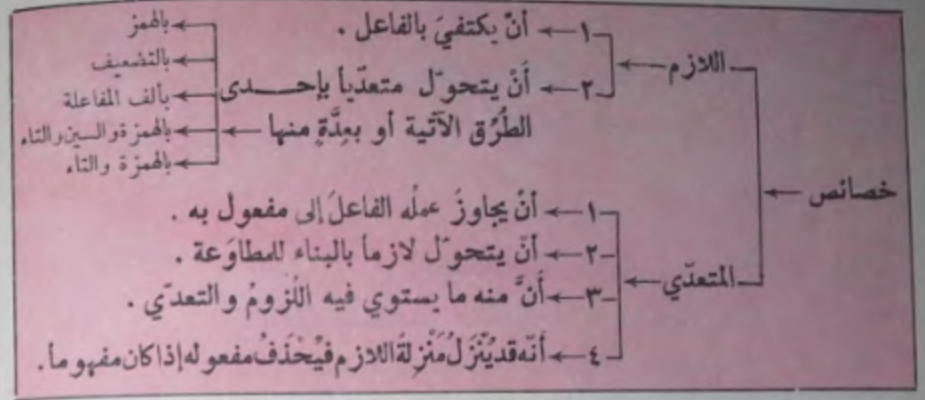 خصائص
اللازم
١ أنْ يكتفيَ بالفاعل .
٢ أنْ يتحوّل متعدّياً بإحــدى
الطُرُق الآتية أو بعِدَّةٍ منها
بالهمز
بالتضعيف
بألف المفاعلة
بالهمزة والسين والتاء
بالهمزة والتاء
المتعدّي
١ أنْ يجاوزَ عملُه الفاعلَ إلى مفعول به .
٢ أنْ يتحوّل لازماً بالبناء للمطاوَعة .
٣ أنَّ منه ما يستوي فيه اللُزومُ والتعدّي .
٤ أنّه قد يُنْزَلُ مَنْزِلةَ اللازم فيُحْذَفُ مفعوله إذا كان مفهوماً.